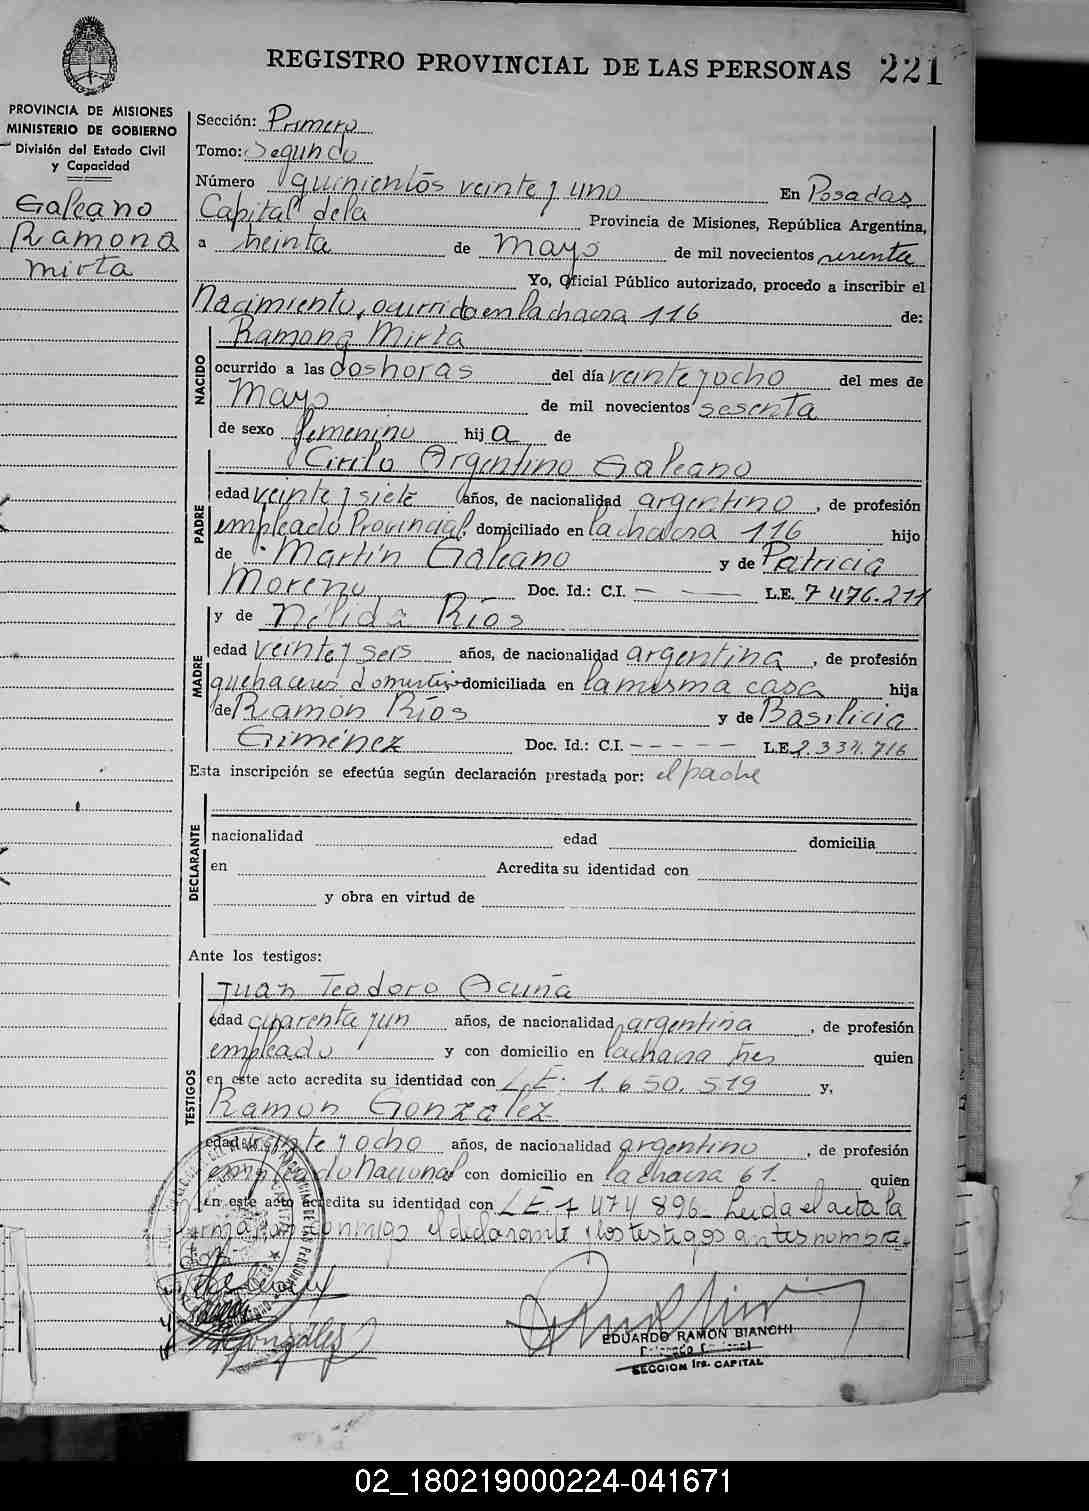 REGISTRO PROVINCIAL DE LAS PERSONAS 221
PROVINCIA DE MISIONES
MINISTERIO DE GOBIERNO
División del Estado Civil
y Capacidad
Galeano
Ramona
Mirta
Sección: Primera
Tomo: Segundo
Número quinientos veinte y uno En Posadas
Capital de la Provincia de Misiones, República Argentina,
a treinta de mayo de mil novecientos sesenta
Yo, Oficial Público autorizado, procedo a inscribir el
Nacimiento, ocurrido en la chacra 116 de:
NACIDO
Ramona Mirta
ocurrido a las dos horas del día veinte y ocho del mes de
Mayo de mil novecientos sesenta
de sexo femenino hij a de
PADRE
Cirilo Argentino Galeano
edad veinte y siete años, de nacionalidad argentino, de profesión
empleado Provincial, domiciliado en la chacra 116 hijo
de Martín Galeano y de Patricia
Moreno Doc. Id.: C.I. — — — L.E. 7 476.211
MADRE
y de Nélida Ríos
edad veinte y seis años, de nacionalidad argentina, de profesión
quehaceres domésticos domiciliada en la misma casa hija
de Ramón Ríos y de Basilicia
Giménez Doc. Id.: C.I. - - - - - L.E. 2.334.716
Esta inscripción se efectúa según declaración prestada por: el padre
DECLARANTE
nacionalidad edad domicilia
en Acredita su identidad con
y obra en virtud de
Ante los testigos:
TESTIGOS
Juan Teodoro Acuña
edad cuarenta y un años, de nacionalidad argentina, de profesión
empleado y con domicilio en la chacra tres quien
en este acto acredita su identidad con L.E. 1.650.519 y,
Ramón González
edad veinte y ocho años, de nacionalidad argentino, de profesión
empleado Nacional con domicilio en la chacra 61. quien
en este acto acredita su identidad con L.E. 7 474 896. Leída el acta la
firman conmigo el declarante y los testigos antes nombra-
dos.
González
EDUARDO RAMON BIANCHI
SECCION 1ra. CAPITAL
02_180219000224-041671